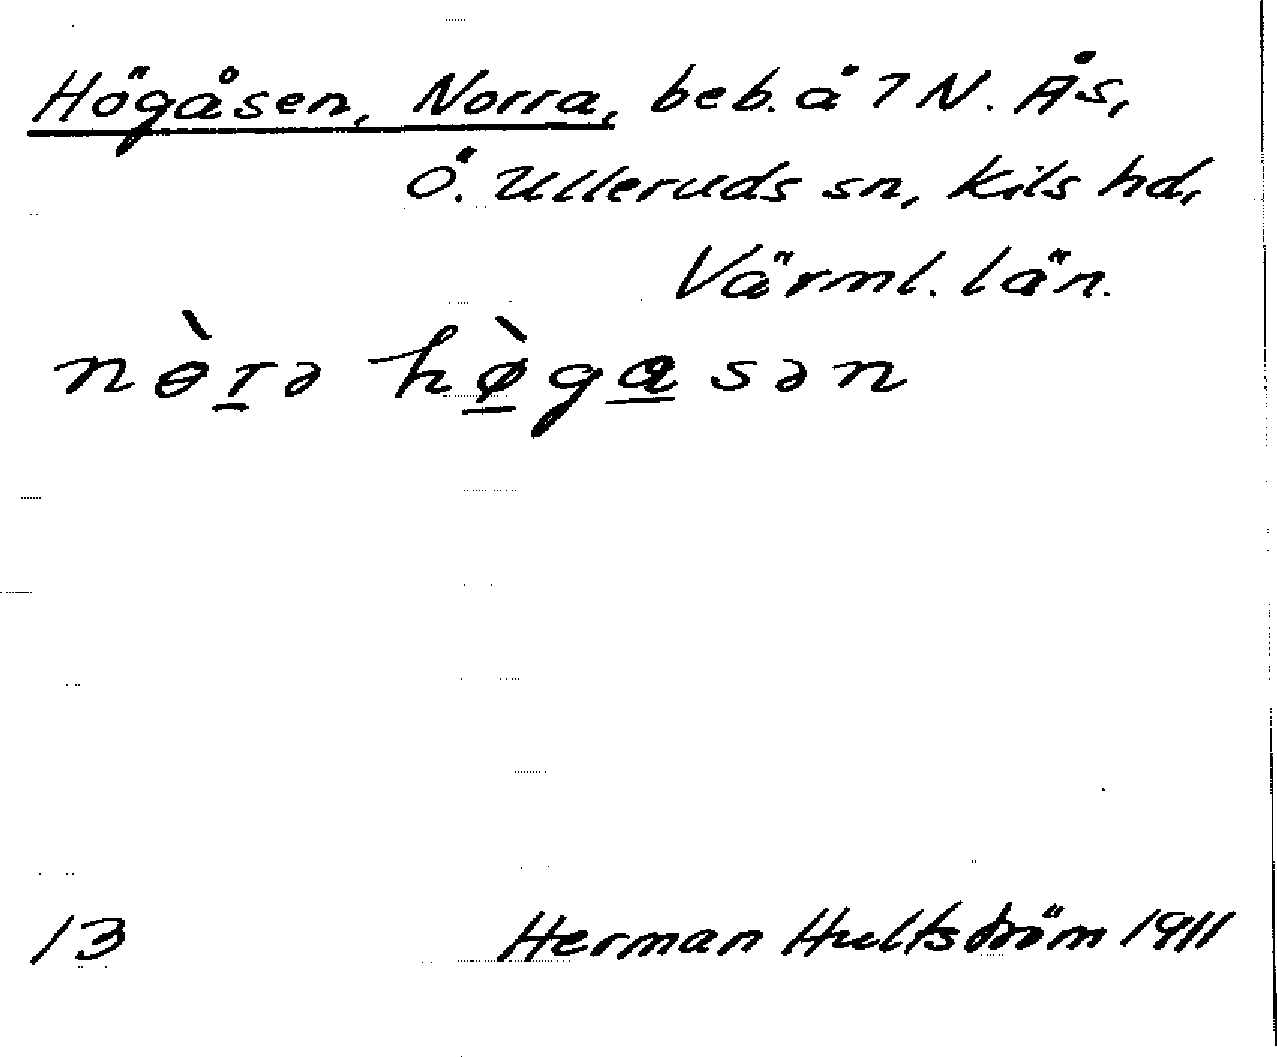 Högåsen, Norra, beb. å 7 N. Ås,
Ö. Ulleruds sn, Kils hd,
Värml. län.
nɵ̀r̲ə hø̲̀ga̲sən
13 Herman Hultström 1911